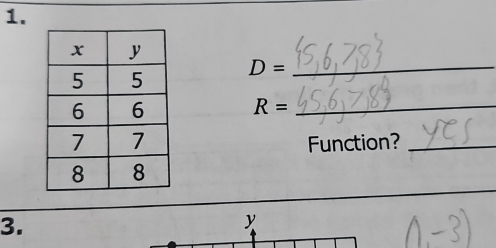 1.
x y
5 5
6 6
7 7
8 8
D = {5,6,7,8}
R = {5,6,7,8}
Function? yes
3.
y